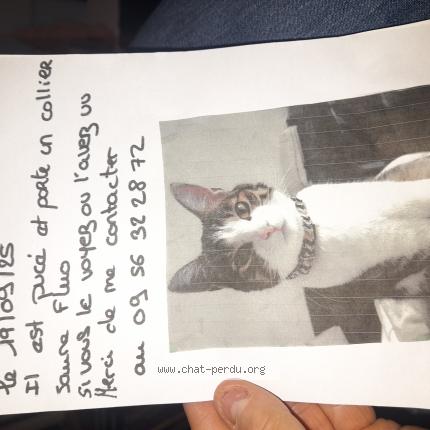 le 19/09/25
Il est pucé et porte un collier
Jaune Fluo
Si vous le voyez ou l'avez vu
Merci de me contacter
au 09 56 32 28 72
www.chat-perdu.org